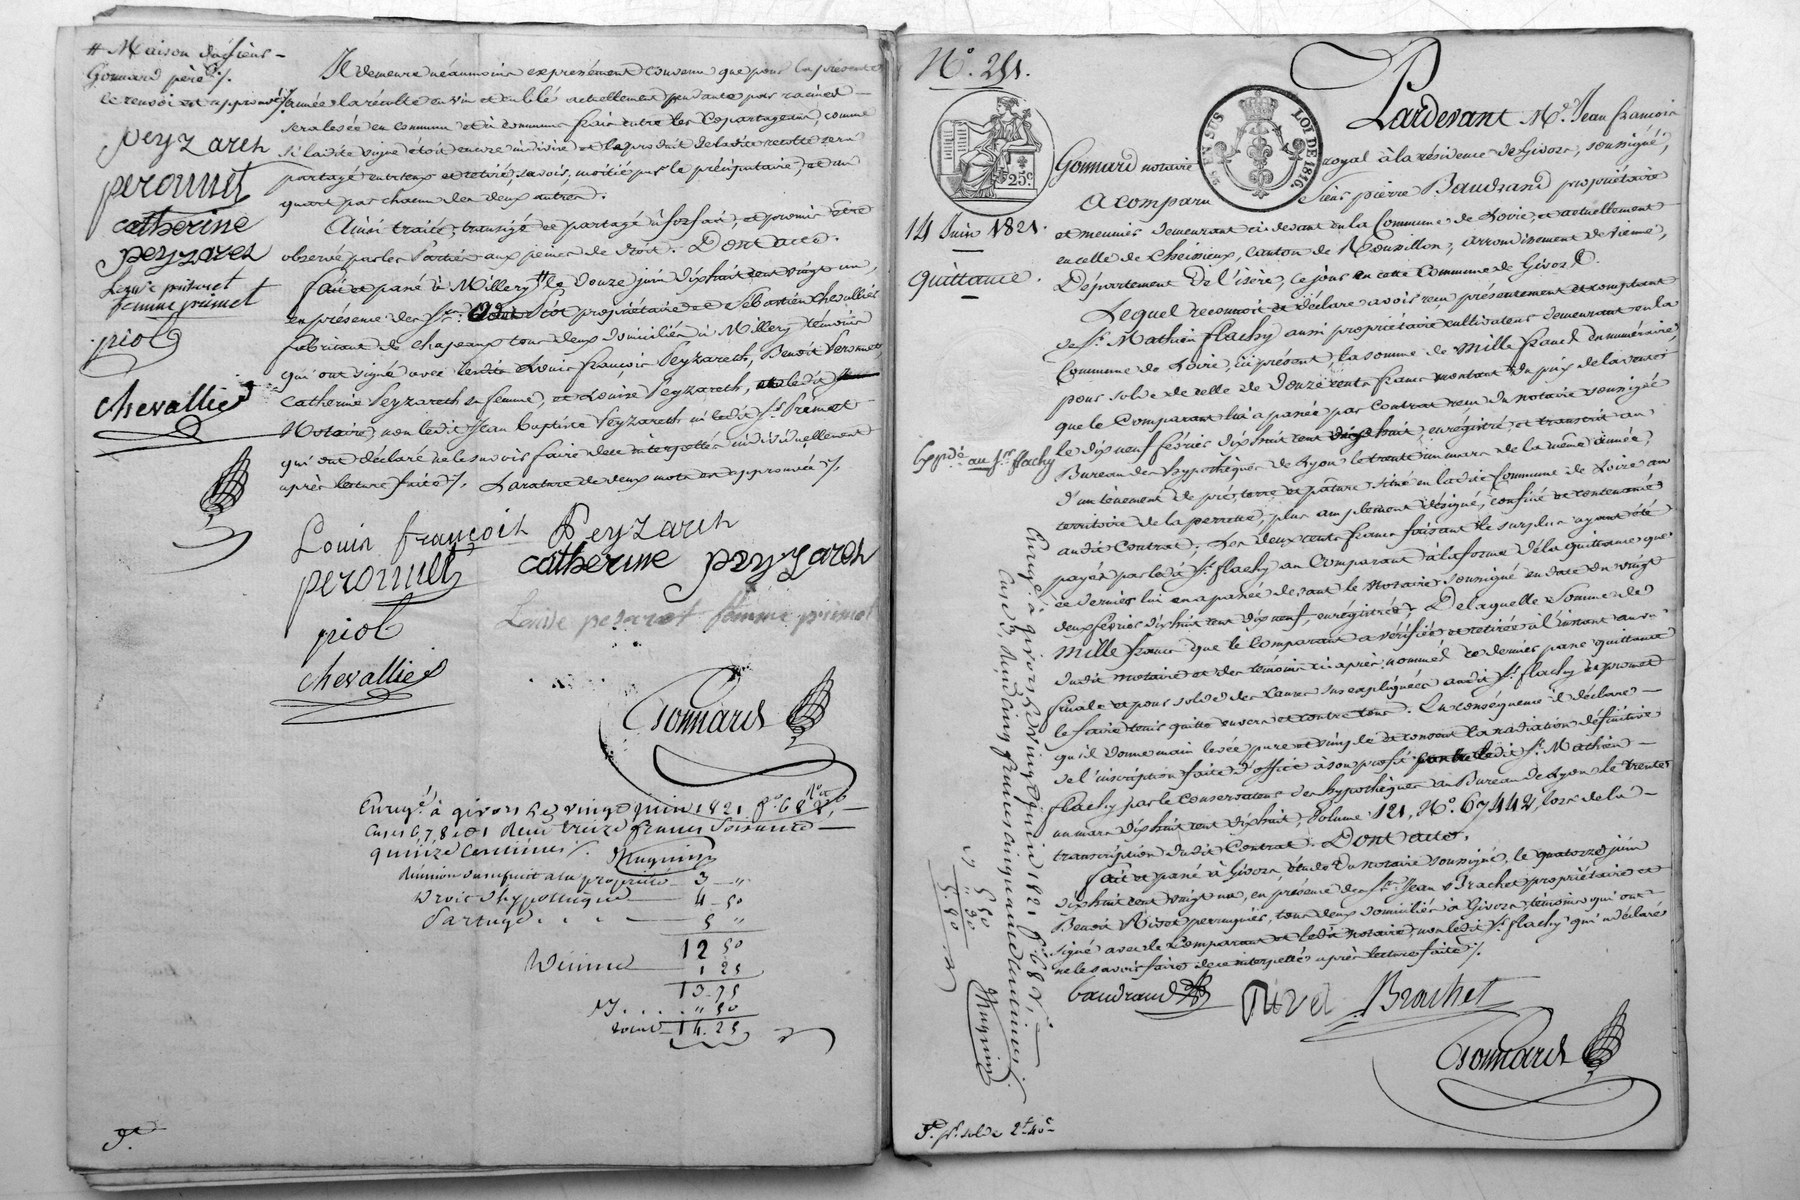 # Maison du sieur
Gonnard père ./.
le renvoi est approuvé ./.
peyzareh
peronnet
catherine
peyzareh
femme primet
piot
chevallier
Il demeure néanmoins expressément convenu que pour la présente
année la récolte en vin et en blé actuellement pendante par racines
sera levée en commun et à communs frais entre les copartageans, comme
si ladite vigne étoit encore indivise et le produit de ladite récolte sera
partagé entr'eux et retiré, savoir, moitié par le préciputaire, et un
quart par chacun des deux autres.
Ainsi traité, transigé et partagé à forfait, et promis être
observé par les Parties aux peines de droit. Dont acte.
fait et passé à Millery # le douze juin dix huit cent vingt un,
en présence des Srs. Piot propriétaire et Sébastien Chevallier
fabricant de chapeaux tous deux domiciliés à Millery témoins
qui ont signé avec Louis françois Peyzareth, Benoit Peronnet,
Catherine Peyzareth sa femme, et Louise Peyzareth, et ledit
Notaire, non ledit Jean baptiste Peyzareth ni ledit Sr. Primet
qui ont déclaré ne le savoir faire de ce interpellés individuellement
après lecture faite ./. La rature de deux mots est approuvée ./.
Louis françois Peyzareh
peronnet catherine peyzareh
femme primet
piot
chevallier
Gonnard
Enregé. à givors le vingt juin 1821 fo. 68 Ro.
Cases 6 7 8 et 1 Reçu treize francs soixante
quinze centimes ./.
Réunion d'usufruit à la propriété 3 "
Droit d'hypothèque 4 50
Partage . . . 5 "
12 50
Dixième 1 25
13 75
. . . . " 50
total 14.25
No. 251.
25c.
EN SUS
LOI DE 1816.
14 Juin 1821.
Quittance.
Expdé. au Sr. flachy
Pardevant Me. Jean françois
Gonnard notaire royal à la résidence de Givors, soussigné,
A comparu Sieur pierre Baudrand propriétaire
et meunier demeurant ci devant en la Commune de Loire, et actuellement
en celle de Cheissieux, canton de Roussillon, arrondissement de Vienne,
Département de l'isère, ce jour en cette Commune de Givors.
Lequel reconnoit et déclare avoir reçu présentement et comptant
de Sr. Mathieu flachy aussi propriétaire cultivateur demeurant en la
Commune de Loire, ici présent, la somme de Mille francs en numéraire,
pour solde de celle de douze cents francs montant du prix de la vente
que le Comparant lui a passée par contrat reçu du notaire soussigné
le dix neuf février dix huit cent dix huit, enregistré, et transcrit au
Bureau des hypothèques de Lyon le trente un mars de la même année,
d'un tènement de pré, terre et pâture situé en ladite Commune de Loire au
territoire de la perrette, plus amplement désigné, confiné et contenancé
audit Contrat. Les deux cents francs faisant le surplus ayant été
payés par ledit Sr. flachy au Comparant à la forme de la quittance que
ce dernier lui en a passée devant le Notaire soussigné en date du vingt
deux février dix huit cent dix neuf, enregistrée. De laquelle somme de
Mille francs que le Comparant a vérifiée et retirée à l'instant au vu
dudit notaire et des témoins ci après nommés ce dernier passe quittance
finale et pour solde des causes sus expliquées audit Sr. flachy et promet
le faire tenir quitte envers et contre tous. En conséquence il déclare
qu'il donne main levée pure et simple et consent la radiation définitive
de l'inscription faite d'office à son profit contre ledit Sr. Mathieu
flachy par le Conservateur des hypothèques au Bureau de Lyon le trente
un mars dix huit cent dix huit, Volume 121, No. 67442, lors de la
transcription dudit Contrat. Dont acte.
fait et passé à Givors, étude du notaire soussigné, le quatorze juin
dix huit cent vingt un, en présence des Srs. Jean Brachet propriétaire et
Benoit Rivet perruquier, tous deux domiciliés à Givors témoins qui ont
signé avec le Comparant et ledit Notaire, non ledit Sr. flachy qui a déclaré
ne le savoir faire de ce interpellé après lecture faite ./.
baudrand Rivet Brachet
Gonnard
Enregé. à Givors le vingt juin 1821 fo. 68 Vo.
Case 5, Reçu cinq francs cinquante centimes ./.
5 50
" 30
5. 80